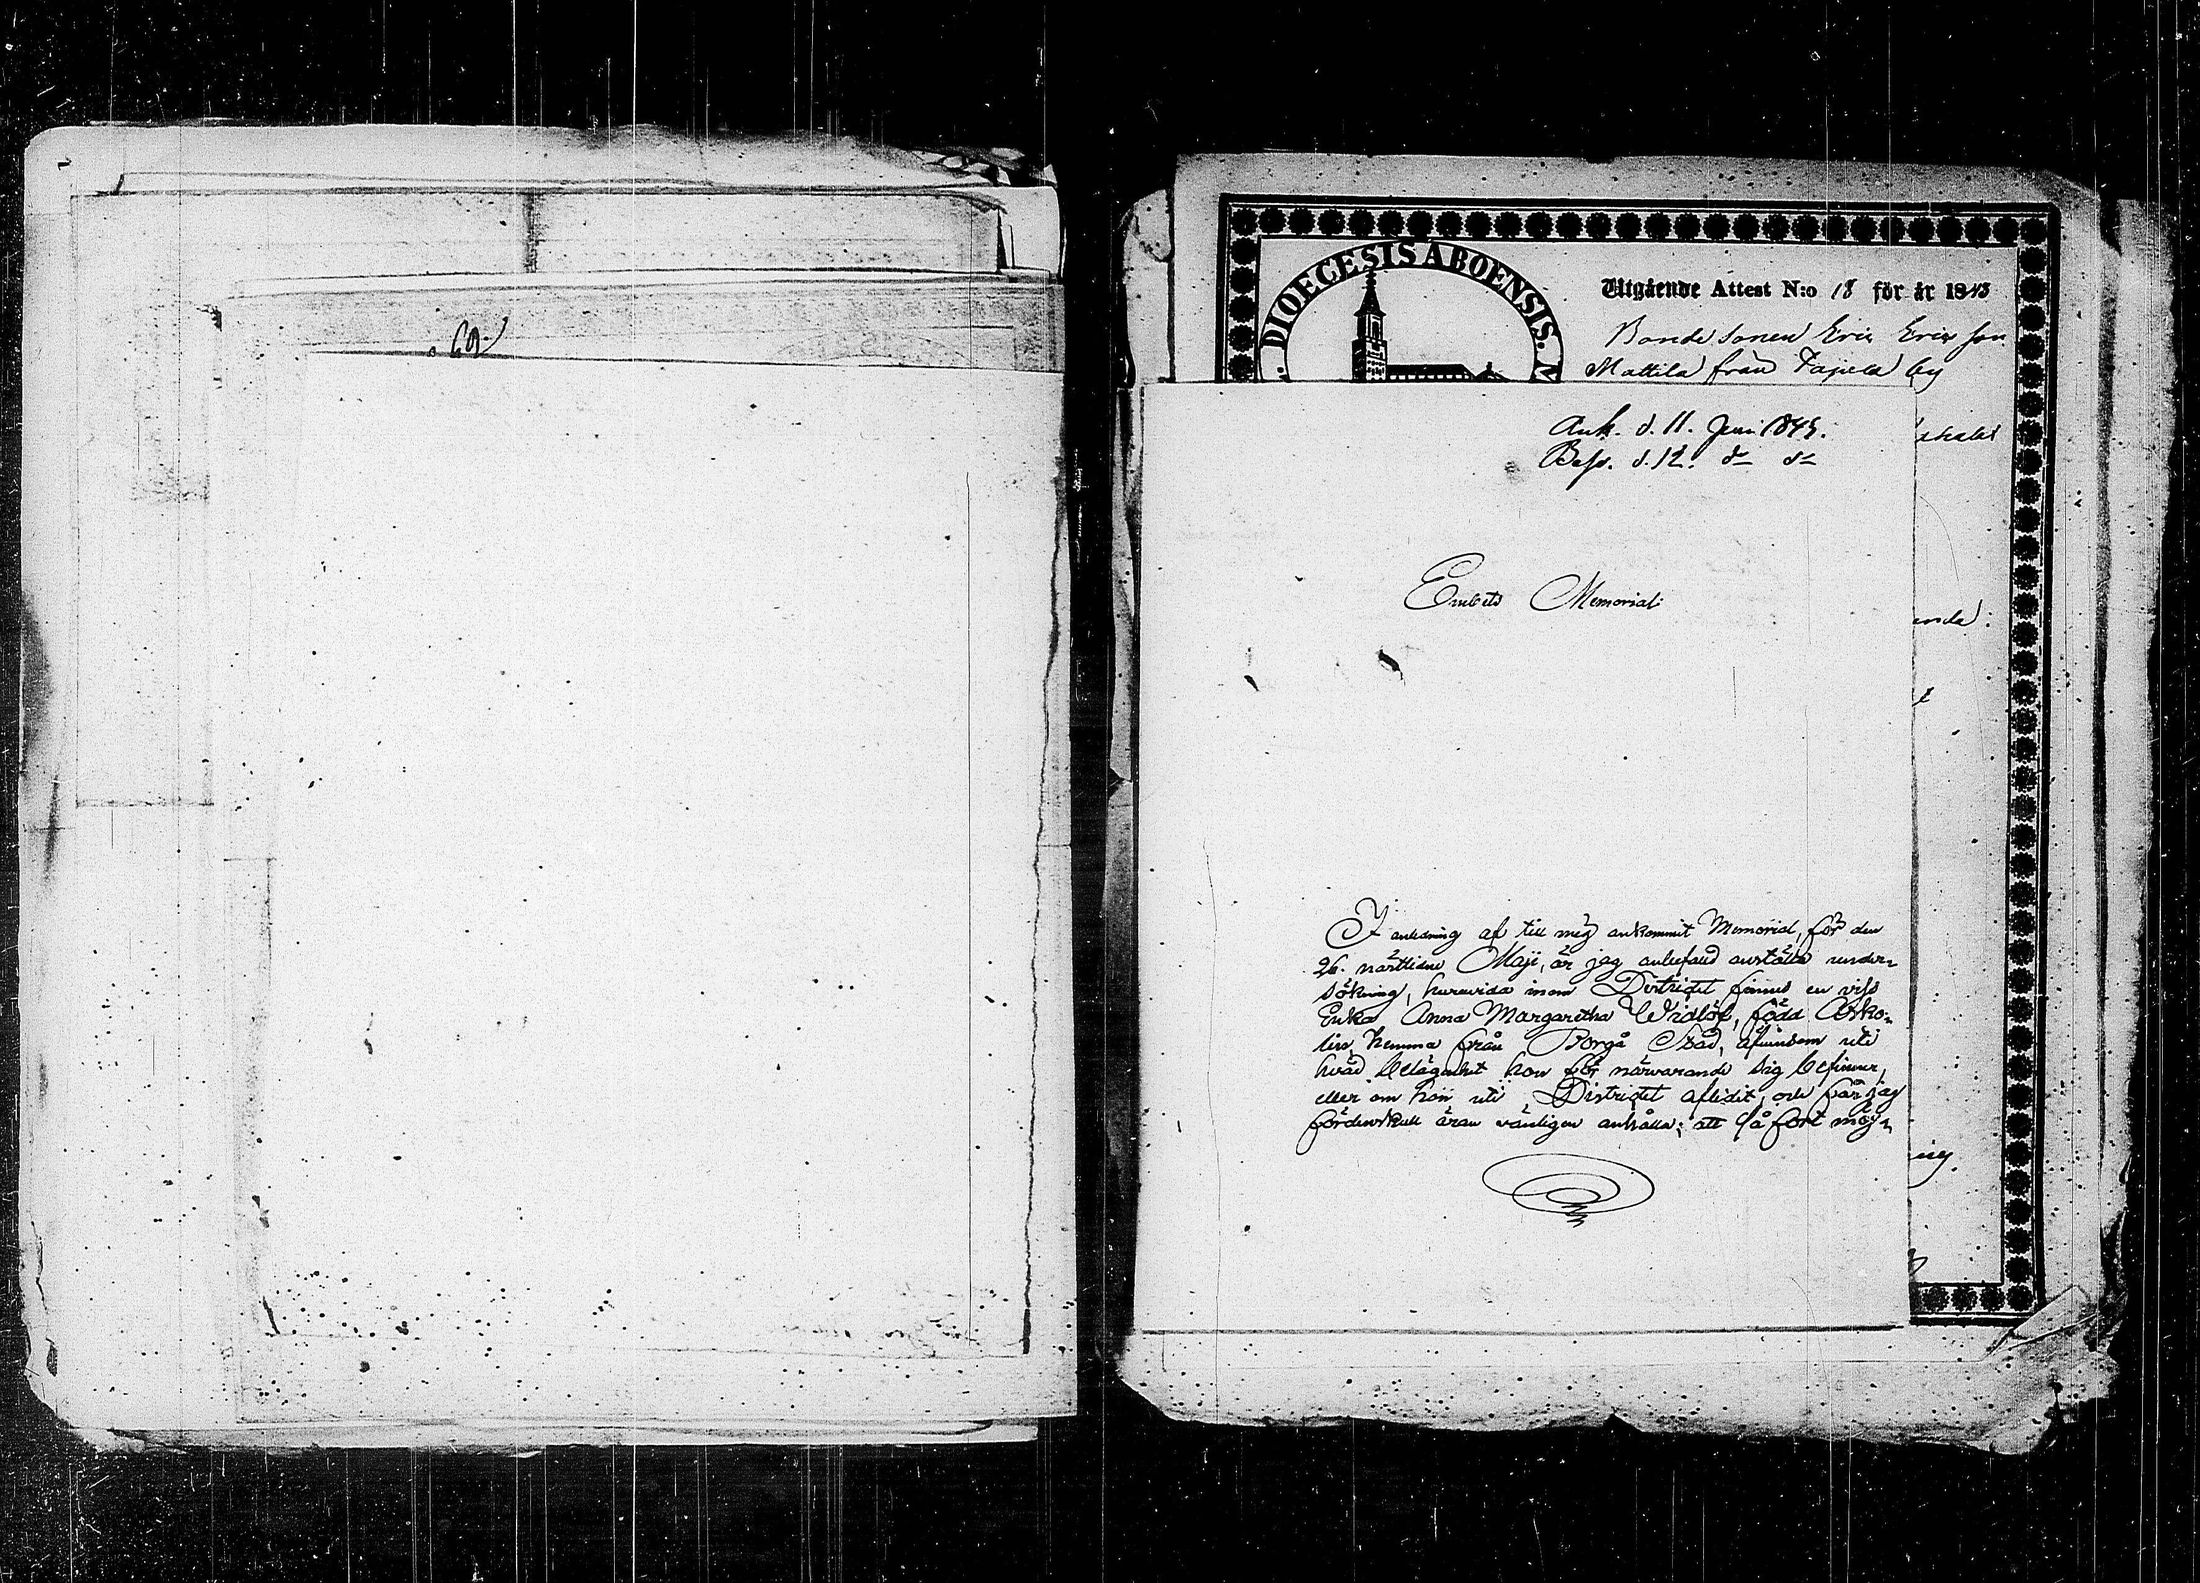 69.
DIOECESIS ABOENSIS.
Utgående Attest N:o 18 för år 1843
Bonde sonen Eric Ericsson
Mattila från by
Ank. d. 11. Juni 1845.
Besv. d. 12. dn dn
Embets Memorial:
I anledning af till mig ankommit Memorial, för den
26. nästlidne Maji, är jag anbefald anställa under-
sökning, huruvida inom Districtet finnes en viss
Enka Anna Margaretha Widlöf, född Asko-
lin, hemma från Borgå Stad, äfvensom uti
hvad belägenhet hon för närvarande sig befinner,
eller om hon uti Districtet aflidit, och får jag
fördenskull äran vänligen anhålla; att så fort möj-